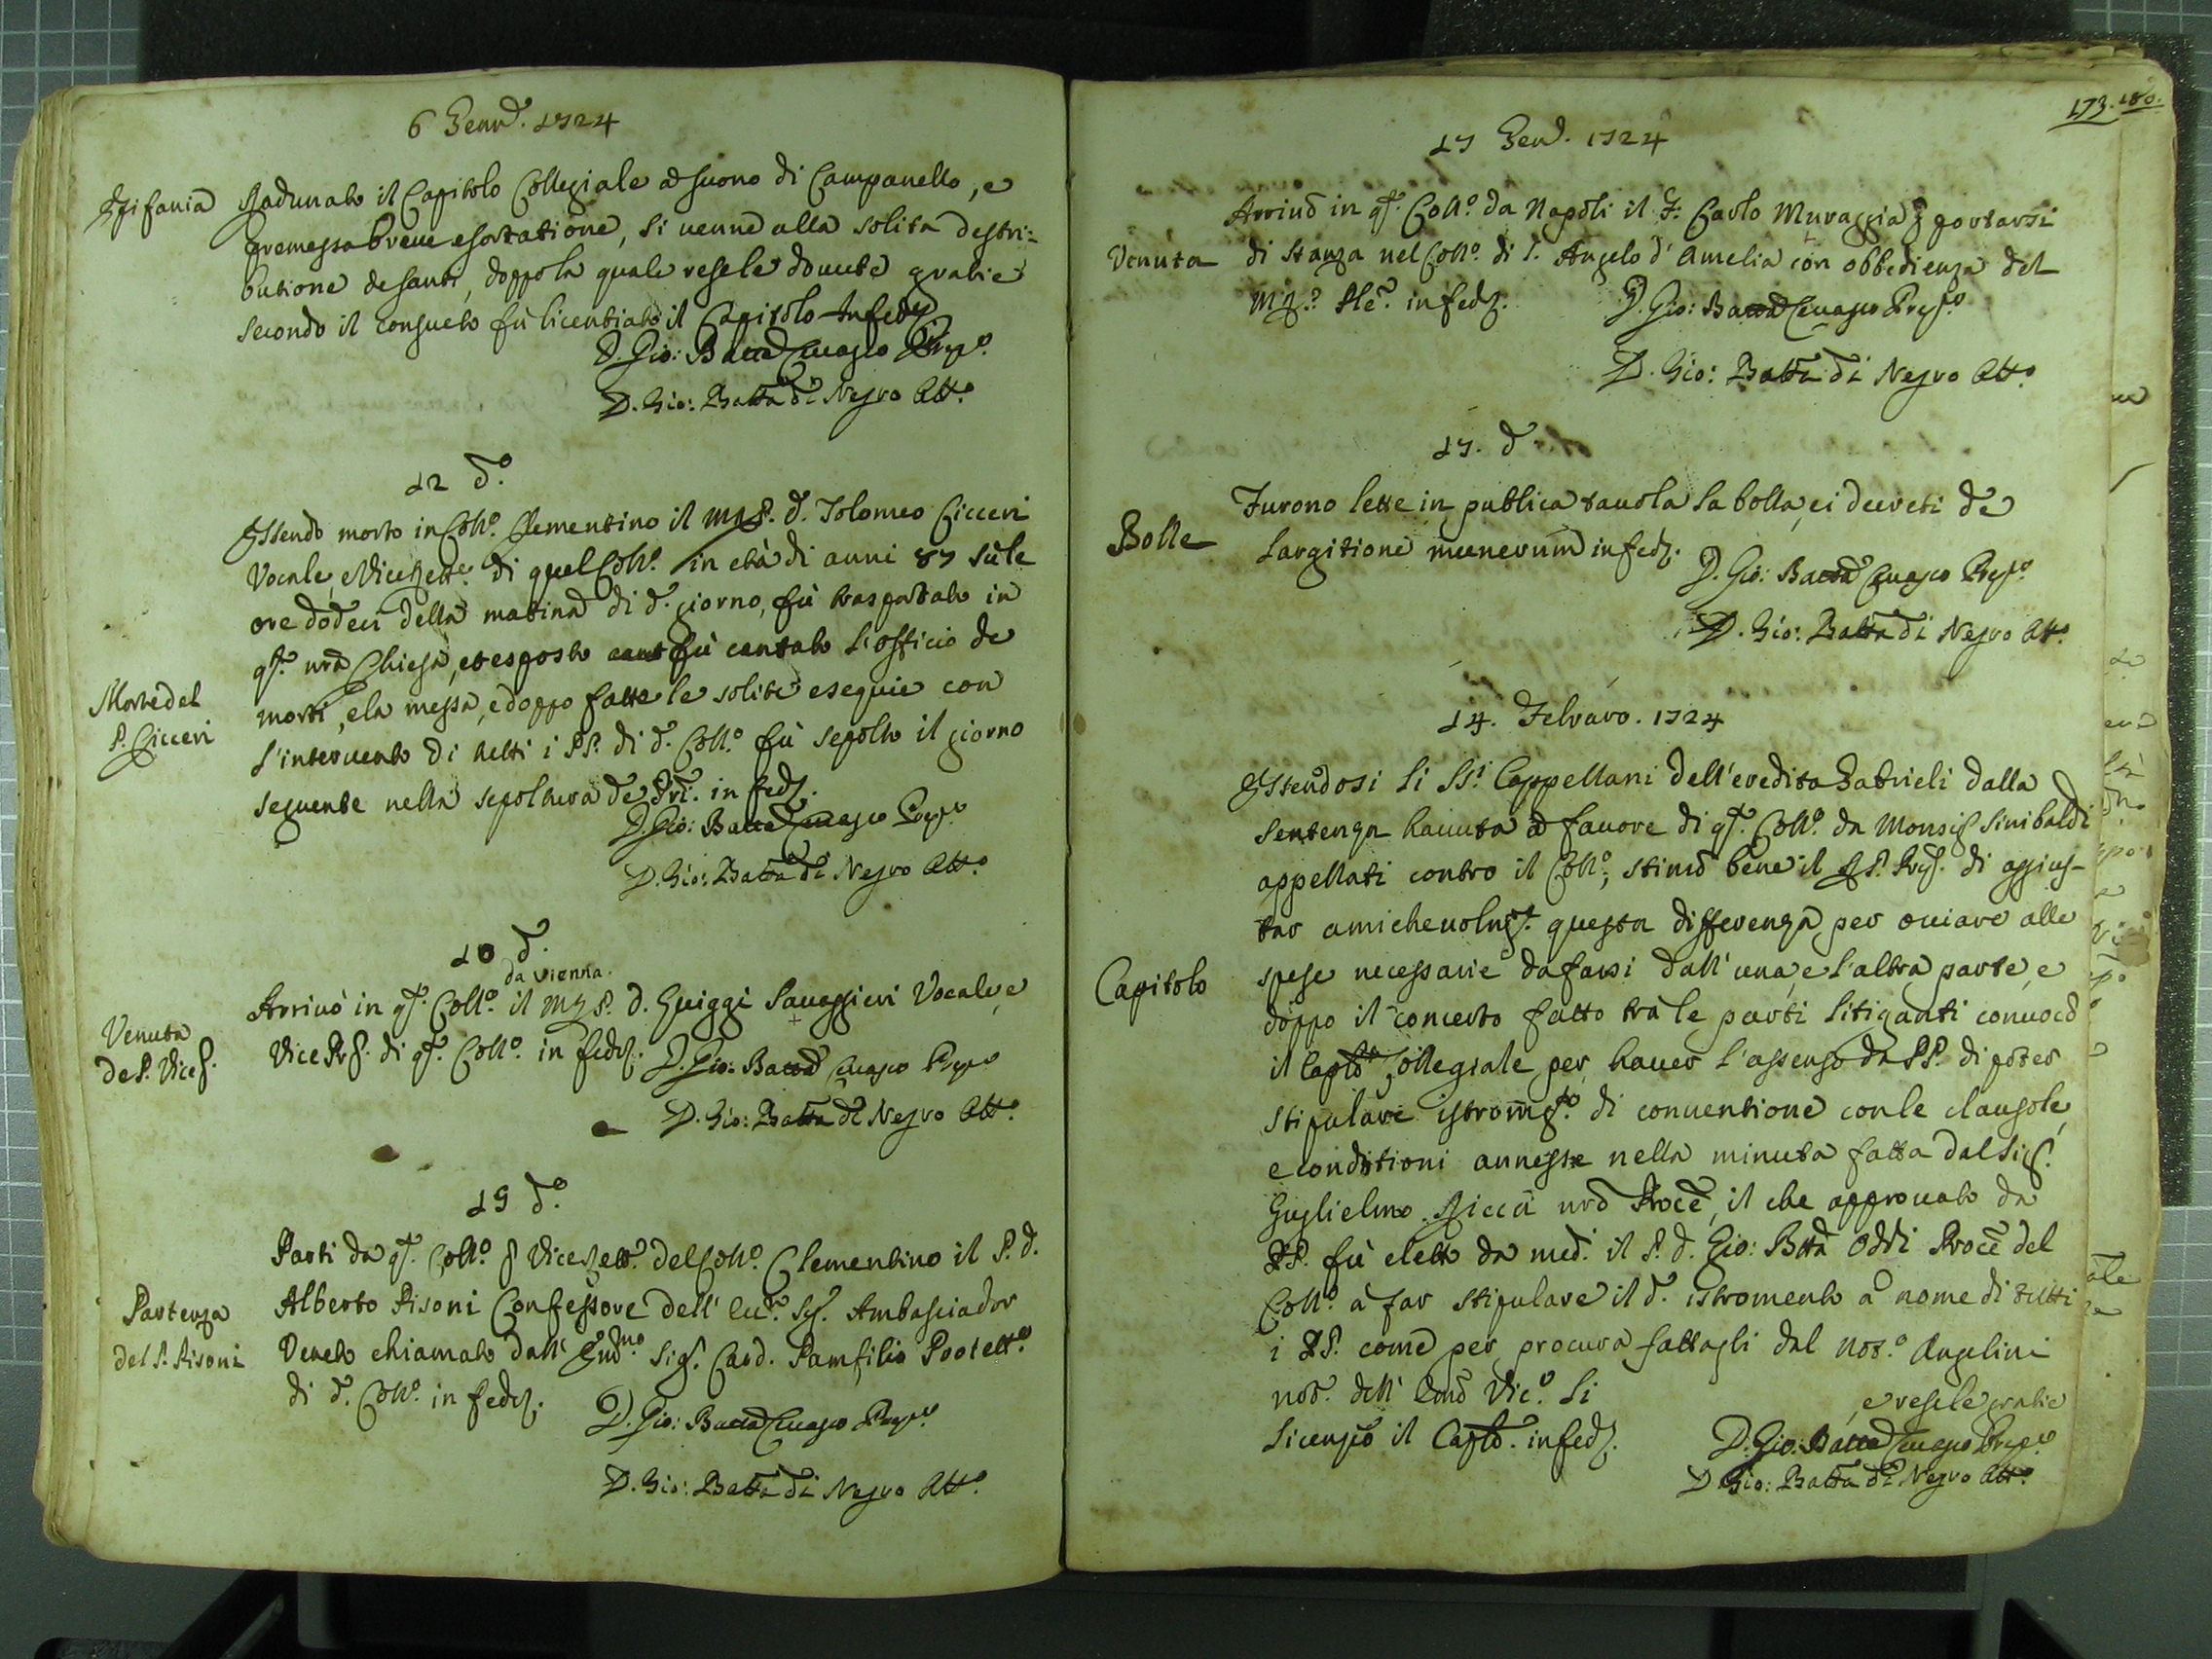 6 Genn.o 1724
Epifania
Radunato il Capitolo Collegiale a suono di Campanello, e
premessa breve esortatione, si venne alla solita destri=
butione de santi, doppo la quale resele dovute gratie
secondo il consueto fù licentiato il Capitolo In fede
D. Gio: Batta Cevasco Prep.o
D. Gio: Batta di Negro Att.o
12 d.o
Morte del
P. Ciceri
Essendo morto in Coll.o Clementino il M.R.P. D. Tolomeo Cicceri
Vocale, e Vice Rett.e di quel Coll.o in età di anni 87 sù le
ore dodeci della matina di d. giorno, fù trasportato in
q.ta nra Chiesa, et esposto fù cantato l'officio de
morti, e la messa, e doppo fatte le solite esequie con
l'intervento di tutti i PP. di d. Coll.o fù sepolto il giorno
seguente nella sepoltura de Pri. in fede.
D. Gio: Batta Cevasco Prep.o
D. Gio: Batta di Negro Att.o
18 d.
Venuta
de P. Vicep.
da Vienna.
Arrivò in q.to Coll.o il M.R.P. D. Gviggi Savaggieri Vocale, e
Vice Prep. di q.to Coll.o in fede.
D. Gio: Batta Cevasco Prep.o
D. Gio: Batta di Negro Att.o
19 d.o
Partenza
del P. Pisoni
Parti da q.to Coll.o p Vice Rett.e del Coll.o Clementino il P. D.
Alberto Pisoni Confessore dell' Ecc.mo Sig. Ambasciador
Veneto chiamato dall' Em.mo Sig. Card. Pamfilio Protett.e
di d. Coll.o in fede.
D. Gio: Batta Cevasco Prep.o
D. Gio: Batta di Negro Att.o
173. 180.
17 Gen.o 1724
Venuta
Arrivò in q.to Coll.o da Napoli il F. Carlo Muraggia p portarsi
di stanza nel Coll.o di S. Angelo d' Amelia con obbedienza del
in fede.
D. Gio: Batta Cevasco Prep.o
D. Gio: Batta di Negro Att.o
17. d.
Bolle
Furono lette in publica tavola la bolla, ei decreti de
largitione munerum in fede.
D. Gio: Batta Cevasco Prep.o
D. Gio: Batta di Negro Att.o
14. Febraro. 1724
Capitolo
Essendosi li SS.i Cappellani dell'eredita Gabrieli dalla
sentenza havuta a favore di q.to Coll.o da Monsig Sinibaldi
appellati contro il Coll.o, stimò bene il R.P. Prep. di aggius-
tar amichevolm.te questa differenza, per oviare alle
spese necessarie da farsi dall' una, e l'altra parte, e
doppo il concerto fatto trà le parti litiganti convocò
il Caplo Collegiale per haver l'assenso da PP. di poter
stipulare istrom.to di conventione con le clausole,
e conditioni annesse nella minuta fatta dal Sig.
Guglielmo Riccà nro Proce, il che approvato da
PP. fù eletto da med. il P. D. Gio: Btta Oddi Proce del
Coll.o à far stipulare il d. istromento à nome di tutti
i PP. come per procura fattagli dal Not.o Angelini
not. dell' Vic.o li
e resele gratie
licenziò il Caplo. in fede.
D. Gio: Batta Cevasco Prep.o
D. Gio: Batta di Negro Att.o